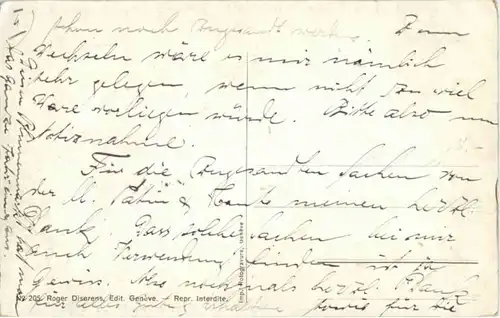 schon noch Angesandt werden. Zum
Wechseln wäre es mir nämlich
sehr gelegen, wenn nicht so viel
Ware vorliegen würde. Bitte also um
Notiznahme.
Für die Angesandten Sachen von
der M. Patin & Tante meinen herzl.
Dank. Dass solche Sachen bei mir
auch Verwendung finden ist ja
gewiss. Also nochmals herzl. Dank
für alles
sowie für die
No 205. Roger Diserens, Edit. Genève. — Repr. Interdite.
Impr. Photogravure, Genève
hat man
das ganze Jahr